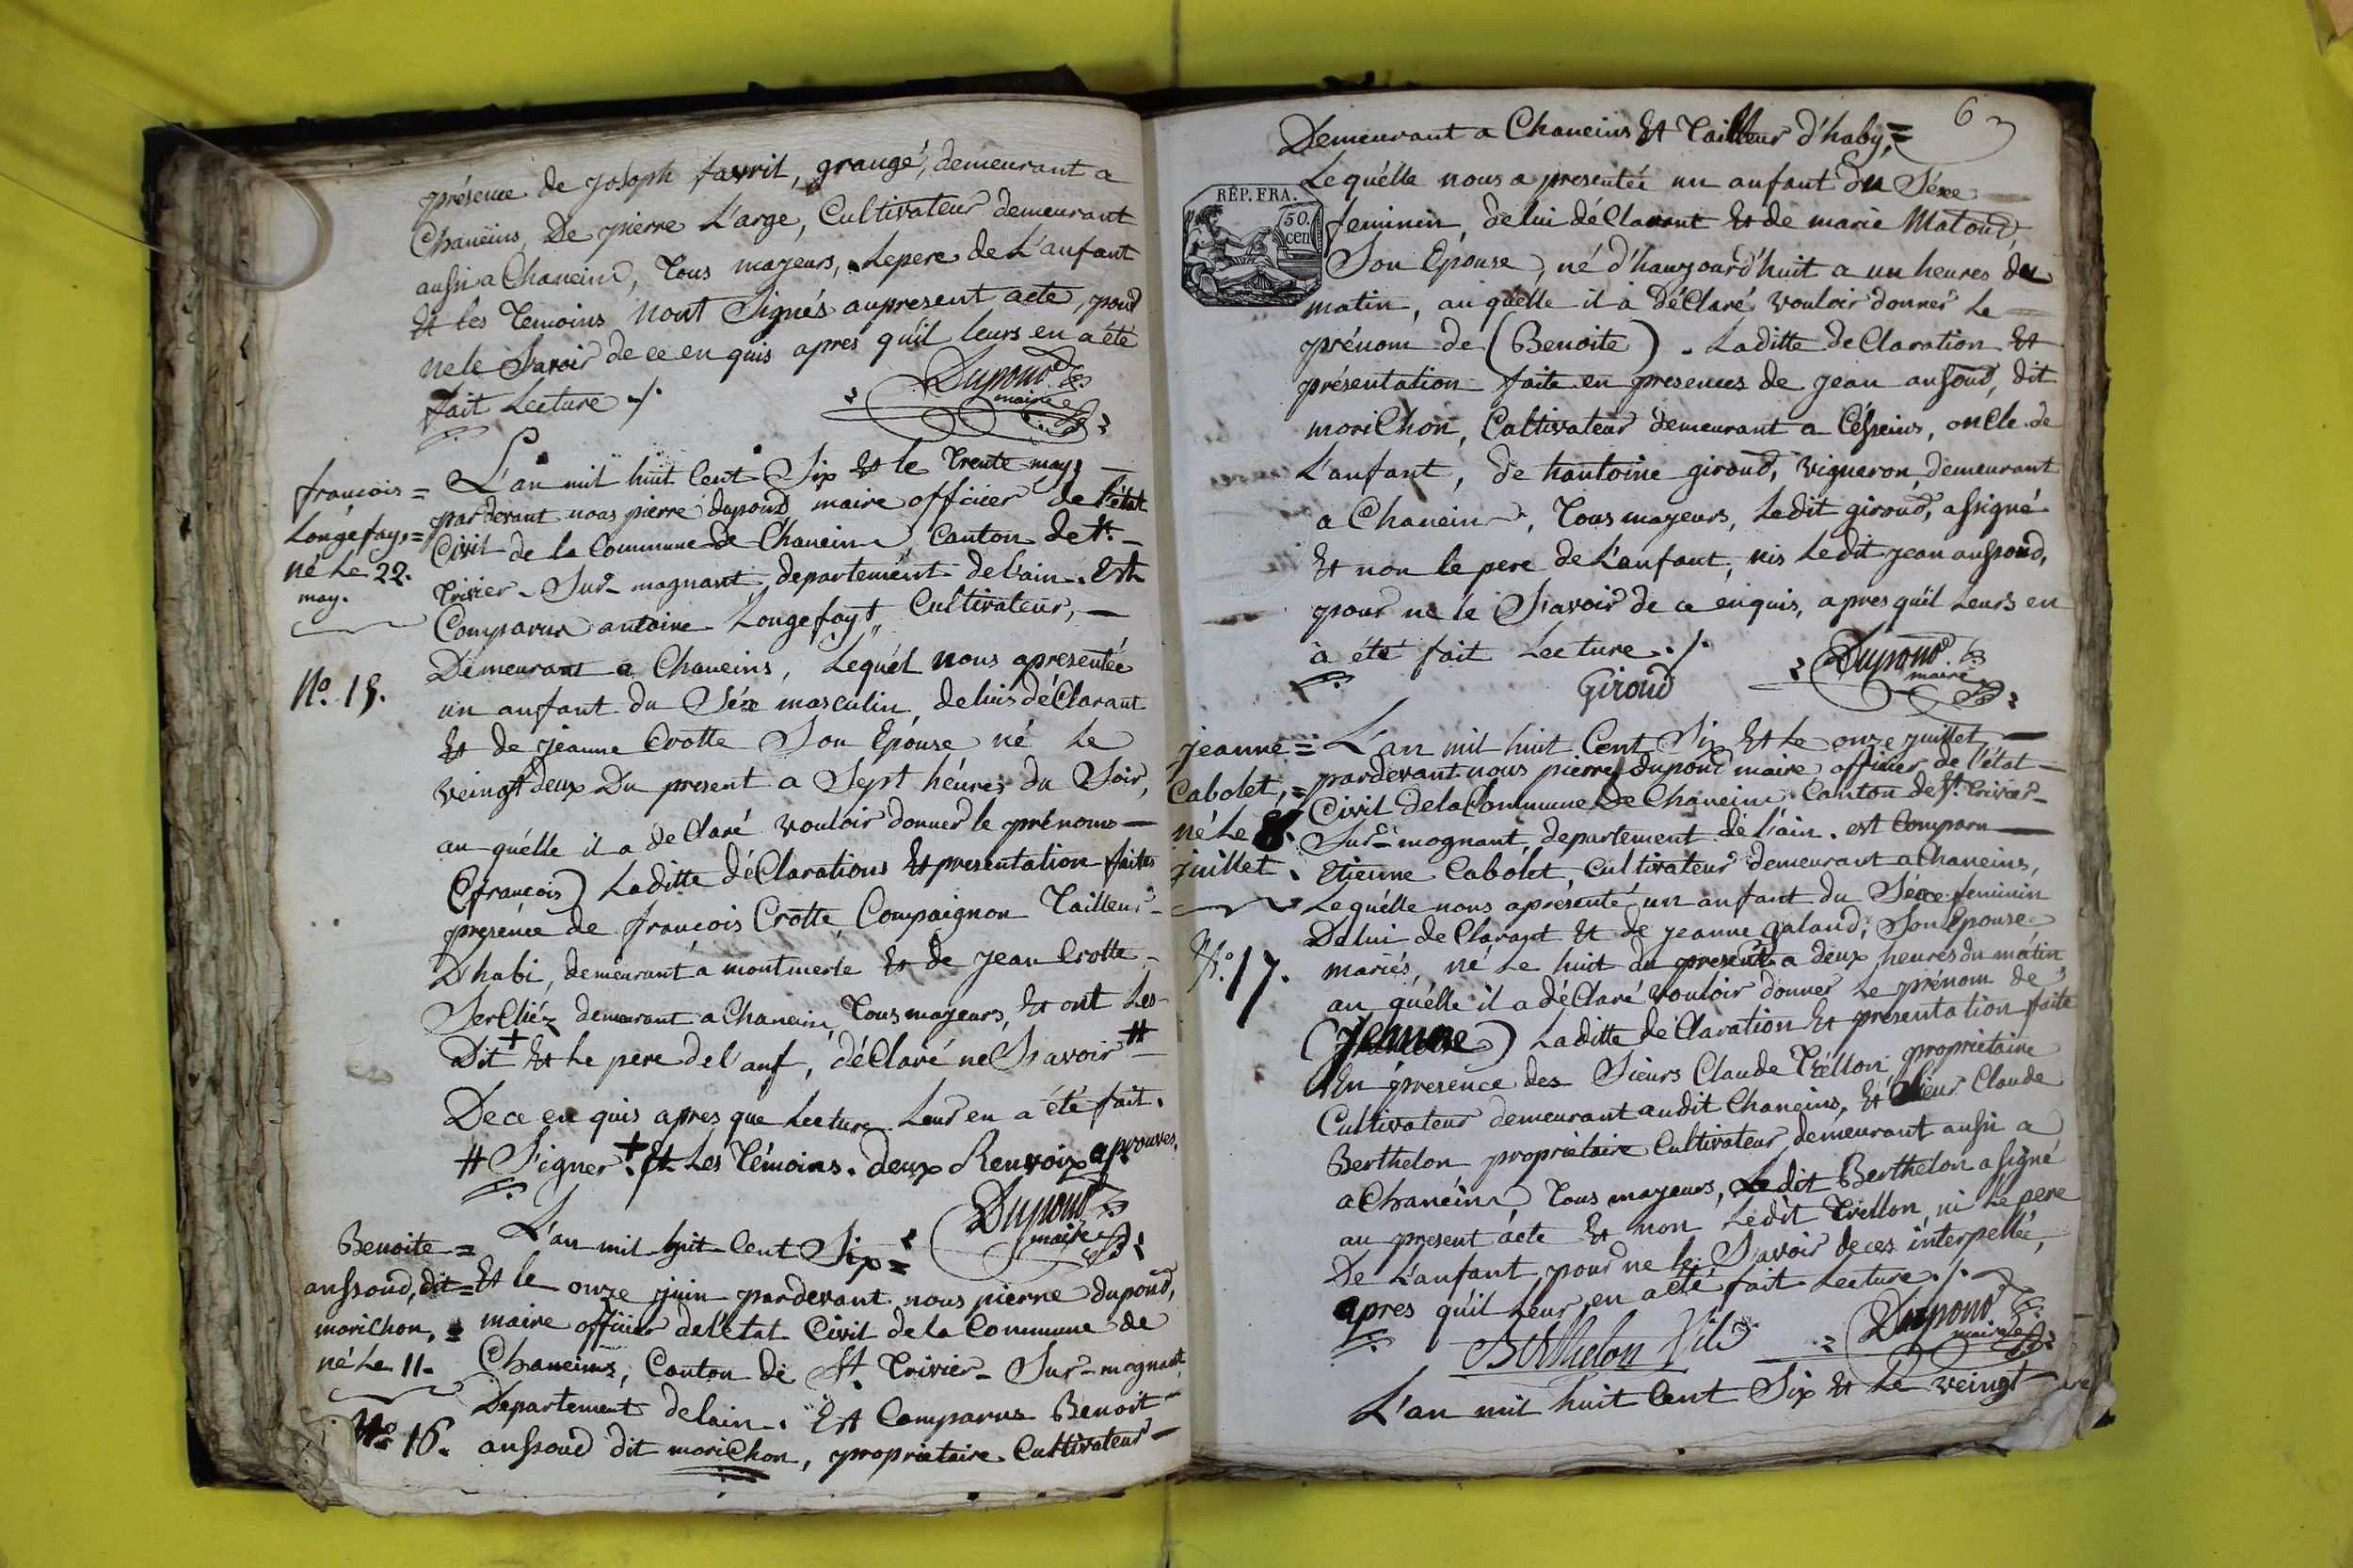 présence de joseph favrit, grangé, demeurant a
Chaneins, De pierre L'arge, Cultivateur demeurant
aussi a Chaneins, Tous mayeurs, Lepere de L'anfant
Et les Temoins nont Signés aupresent acte, pour
nele Savoir de ce en quis apres qu'il leurs en a été
fait Lecture ./.
Dupond
maire
françois =
Longefay, =
né Le 22.
may.
No. 15.
L'an mil huit Cent Six Et le Trente may, —
par devant nous pierre dupond maire officier de l'état
Civil de la Commune de Chaneins, Canton de St. —
Trivier - Sur - magnant, departement de l'ain. Est
Comparus antoine Longefayt, Cultivateur, —
Demeurant a Chaneins, Lequél nous apresentée
un anfant du Séxe masculin, de luis déClarant
Et de jeanne Crotte Son Epouse né Le
veingt deux Du present a Sept héures du Soir,
au quélle il a deClaré vouloir donner le prénoms —
(françois) Laditte déClarations Et presentation faites
presence de françois Crotte, Compaignon Tailleur -
D'habi, demeurant a montmerle Et de jean Crotte -
SerCliéz demeurant a Chaneins, Tous mayeurs, Et ont Les -
Dit + Et Le pere del'anf, déClaré ne Savoir #
De ce en quis apres que Lecture Leur en a été fait.
# Signer + . Et Les Témoins. deux Renvoix aprouves.
Dupond
maire
Benoite =
anssoud, dit =
moriChon, =
né Le 11.
No 16.
L'an mil huit Cent Six =
Et le onze juin pardevant nous pierre dupond,
maire officier de l'état Civil de la Commune de
Chaneins, Canton de St. Trivier - Sur - mognant,
Departement delain. Est Comparus Benoit -
anssoud dit moriChon, proprietaire Cultivateur —
6
Demeurant a Chaneins Et Tailleur d'haby, =
REP. FRA.
50.
cen
Lequélle nous a presentée un anfant du Séxe
feminin, de lui déClarant Et de marie Matoud,
Son Epouse, né d'haujourd'huit a un heures du
matin, au quélle il à déClaré vouloir donner Le
prénom de (Benoite). Laditte deClaration Et
présentation faite en presences de jean ansoud, dit
moriChon, Cultivateur demeurant a Césseins, onCle de
L'anfant, de hantoine giroud, vigneron, demeurant
a Chaneins, Tous mayeurs, Ledit giroud, assigné
Et non le pere de L'anfant, nis Ledit jean anssoud,
pour ne le Savoir de ce enquis, apres qu'il Leurs en
à été fait Lecture ./.
Giroud
Dupond
maire
jeanne =
Cabolet, =
né Le 8.
juillet.
No. 17.
L'an mil huit Cent Six Et Le onze juillet —
pardevant nous pierre dupond maire officier de l'état —
Civil dela Commune De Chaneins Canton de St. Trivier -
Sur - mognant, departement de l'ain. est Comparu —
Etienne Cabolet, Cultivateur demeurant a Chaneins,
Lequélle nous apresenté un anfant du Séxe feminin
De lui deClarant Et de jeanne galand, Son Epouse
mariés, né Le huit du present a deux heures du matin
au quélle il a déClaré vouloir donner Le prénom de
(Jeanne) Laditte deClaration Et présentation faite
En presence des Sieurs Claude Tréllon, propriétaire
Cultivateur demeurant audit Chaneins, Et Sieur Claude
Berthelon propriétaire Cultivateur, demeurant aussi a
a Chaneins, Tous mayeurs, Ledit Berthelon a signé
au present acte Et non Ledit Tréllon, ni Le pere
De L'anfant pour ne le Savoir de ces interpellée,
apres qu'il Leur en a été fait Lecture ./.
Berthelon
Dupond
maire
L'an mil huit Cent Six Et Le veingt